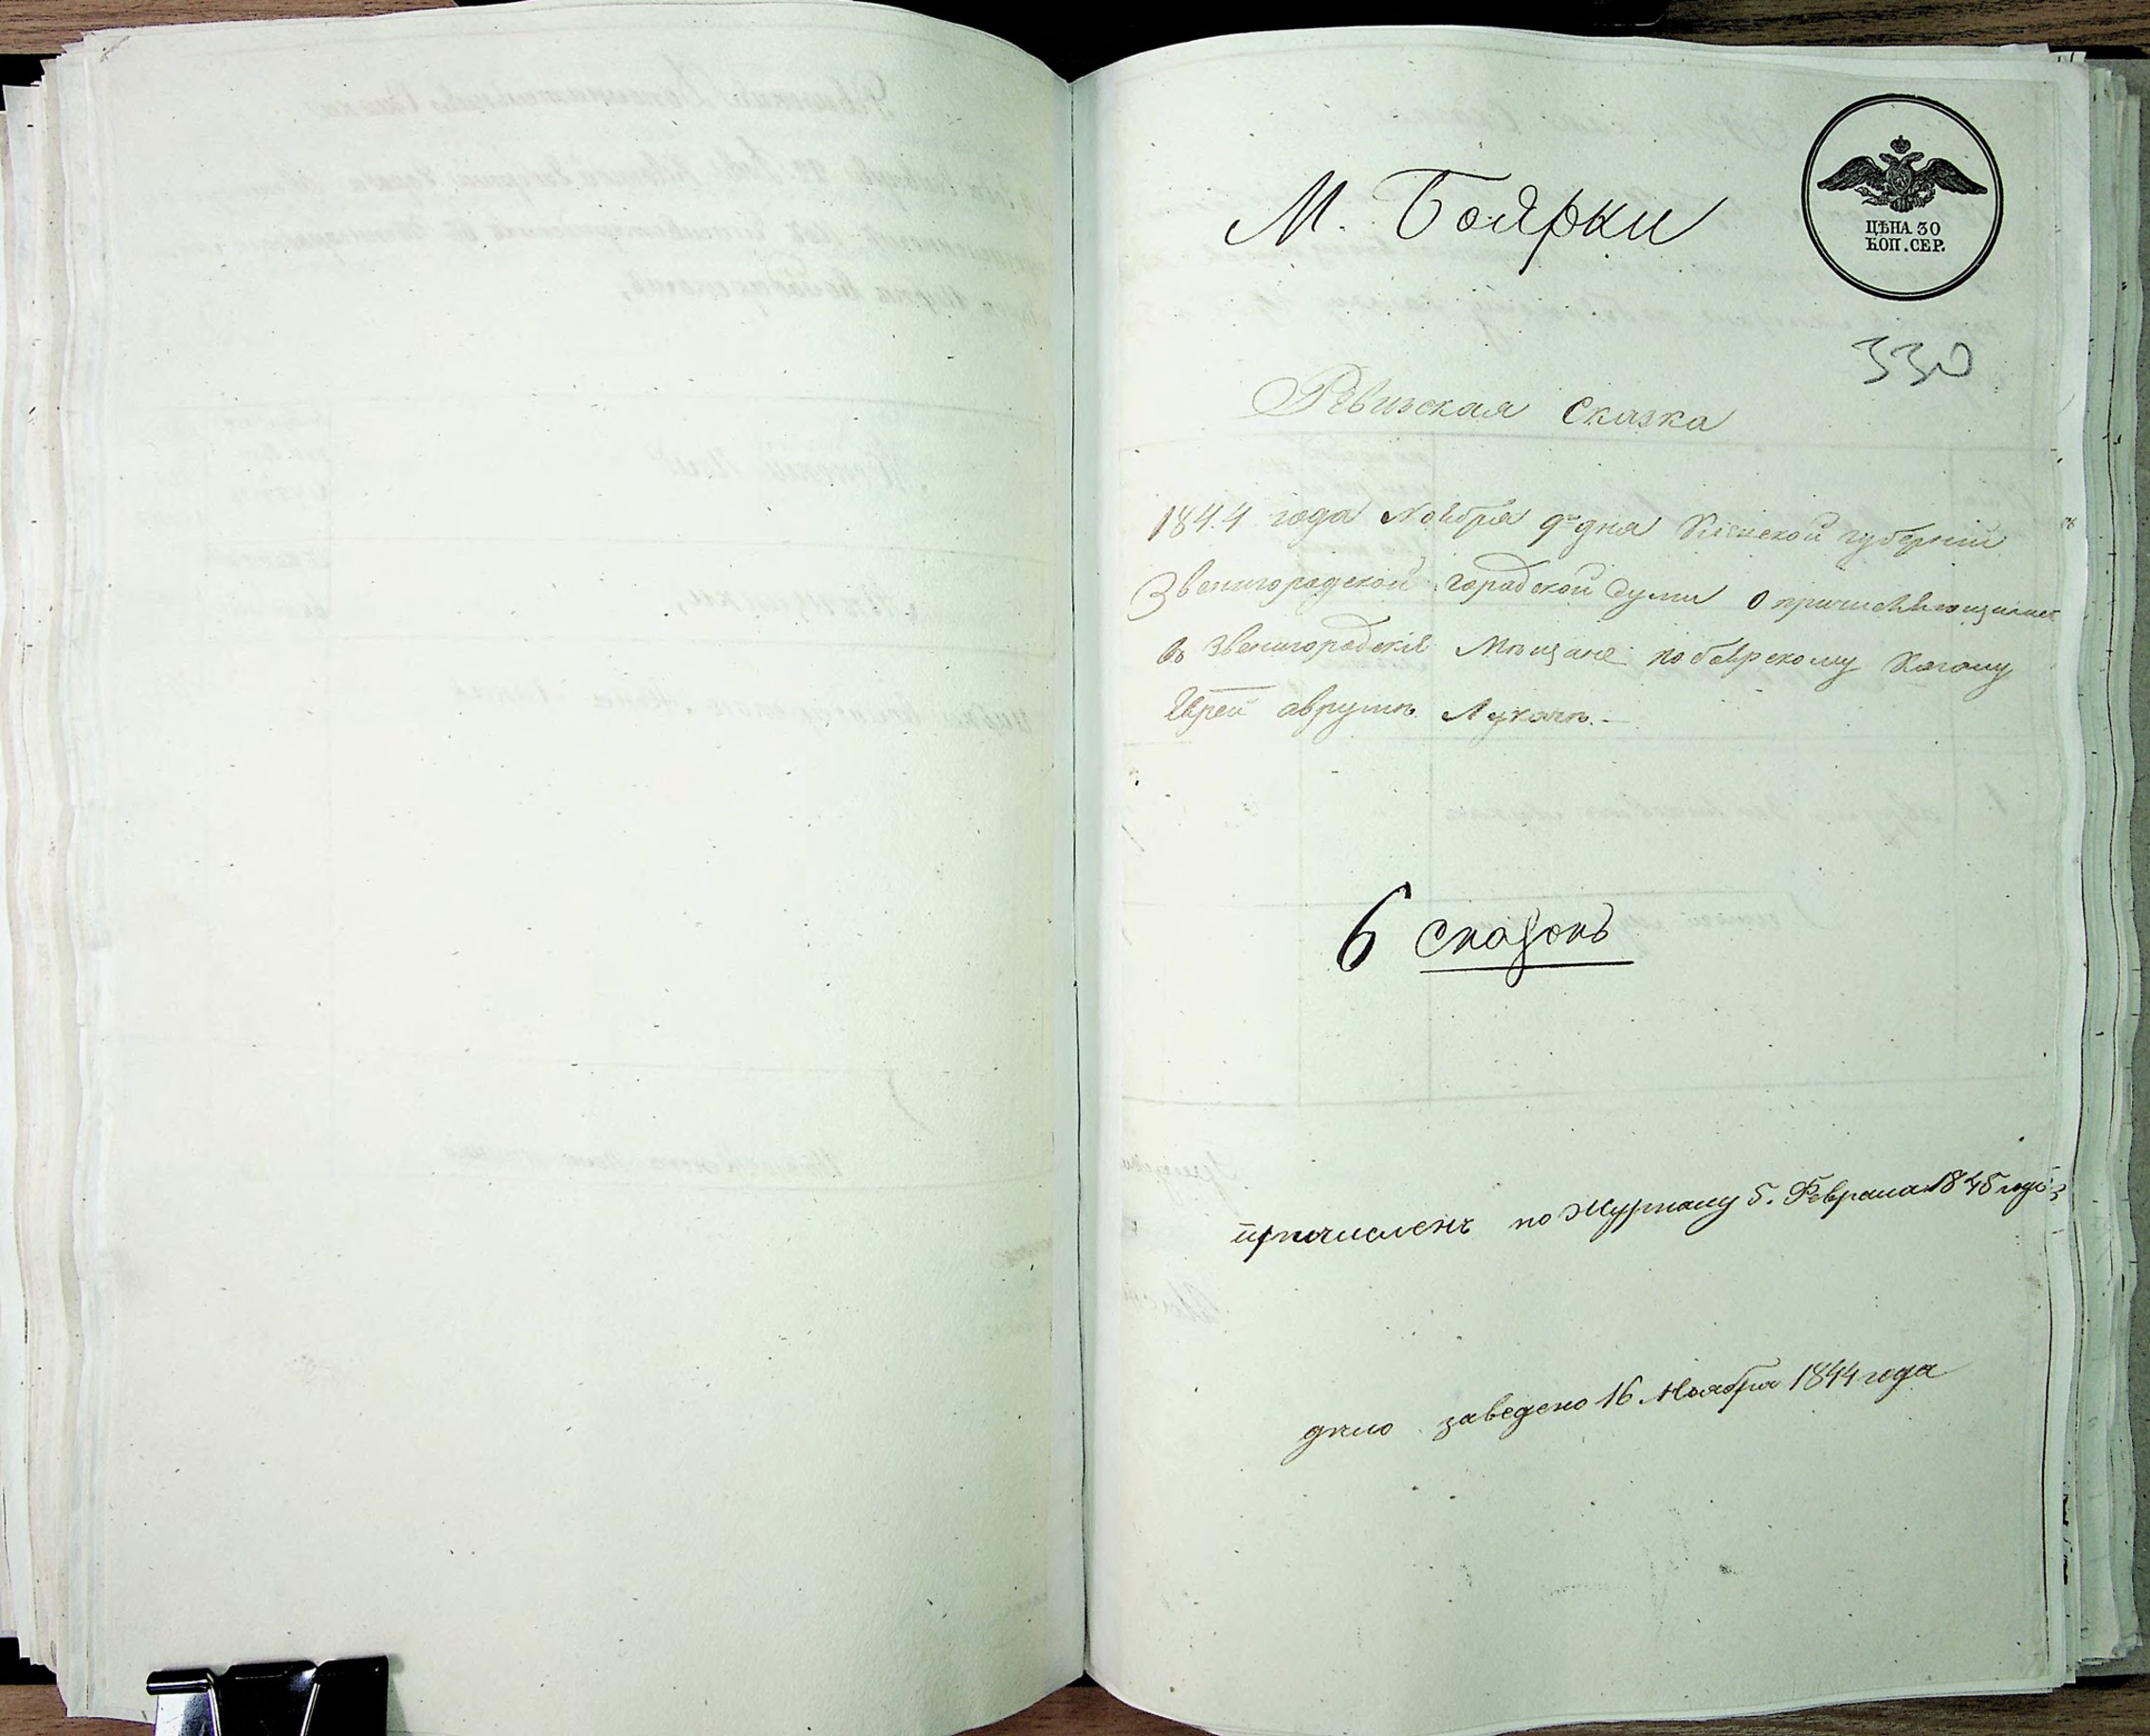 М. Боярки
ЦѢНА 30
КОП. СЕР.
330
Ревизская Сказка
1844 года Ноября 9го дня Кіевской губерніи
Звенигородской Городской думи о причисляющимся
въ Звенигородскія Мѣщане по боярскому Кагалу
Еврей Аврумъ Лукачъ.
6 сказокъ
причисленъ по Журналу 5. Февраля 1845 года
дѣло заведено 16 Ноября 1844 года